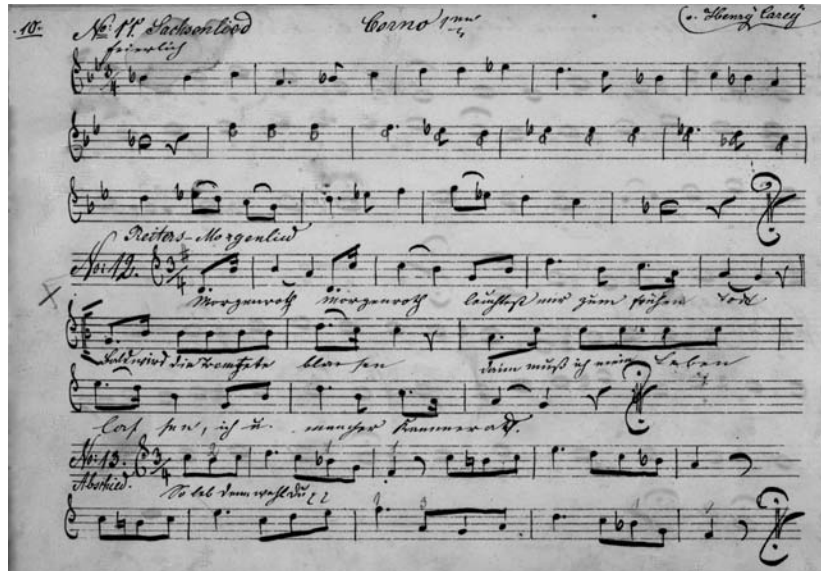 ·10· No: 11. Sachsenlied Corno 1mo v. Henry Carey
feierlich
3/4
Reiters-Morgenlied
No: 12. 3/4
Morgenroth Morgenroth leuchtest mir zum frühen Tod
Bald wird die Trompete blasen dann muß ich mein Leben
lassen, ich u. mancher Kammerad.
No: 13. 3/4
Abschied.
So leb denn wohl du